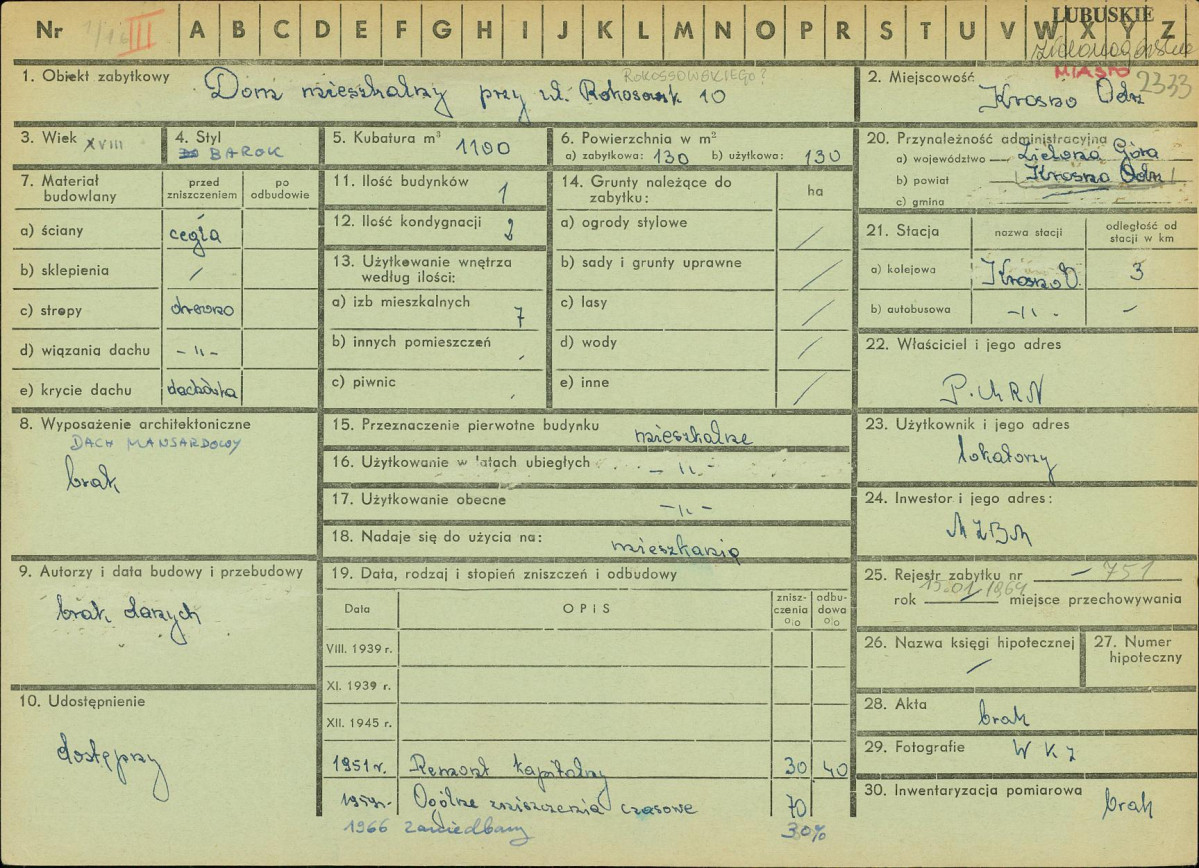 Nr III A B C D E F G H I J K L M N O P R S T U V W X Y Z
LUBUSKIE
zielonogórskie
MIASTO
2333
1. Obiekt zabytkowy Dom mieszkalny przy ul. Rokosowsk 10
ROKOSSOWSKIEGO?
2. Miejscowość
Krosno Odrz
3. Wiek XVIII
4. Styl
BAROK
5. Kubatura m³ 1100
6. Powierzchnia w m²
a) zabytkowa: 130 b) użytkowa: 130
7. Materiał budowlany
przed zniszczeniem
po odbudowie
a) ściany cegła
b) sklepienia /
c) stropy drewno
d) wiązania dachu -"-
e) krycie dachu dachówka
8. Wyposażenie architektoniczne
DACH MANSARDOWY
brak
9. Autorzy i data budowy i przebudowy
brak danych
10. Udostępnienie
dostępny
11. Ilość budynków 1
12. Ilość kondygnacji 2
13. Użytkowanie wnętrza
według ilości:
a) izb mieszkalnych 7
b) innych pomieszczeń
c) piwnic /
14. Grunty należące do
zabytku:
ha
a) ogrody stylowe /
b) sady i grunty uprawne /
c) lasy /
d) wody /
e) inne /
15. Przeznaczenie pierwotne budynku mieszkalne
16. Użytkowanie w latach ubiegłych -"-
17. Użytkowanie obecne -"-
18. Nadaje się do użycia na: mieszkania
19. Data, rodzaj i stopień zniszczeń i odbudowy
Data
OPIS
zniszczenia %
odbudowa %
VIII. 1939 r.
XI. 1939 r.
XII. 1945 r.
1951 r. Remont kapitalny 30 40
1959 r. Ogólne zniszczenia czasowe 70
1966 zaniedbany 30%
20. Przynależność administracyjna
a) województwo Zielona Góra
b) powiat Krosno Odrz
c) gmina
21. Stacja
nazwa stacji
odległość od
stacji w km
a) kolejowa Krosno O. 3
b) autobusowa -"- -
22. Właściciel i jego adres
P.MRN
23. Użytkownik i jego adres
lokatorzy
24. Inwestor i jego adres:
MZBM
25. Rejestr zabytku nr 751
15.01.1964
rok miejsce przechowywania
26. Nazwa księgi hipotecznej
/
27. Numer
hipoteczny
28. Akta
brak
29. Fotografie WKZ
30. Inwentaryzacja pomiarowa
brak